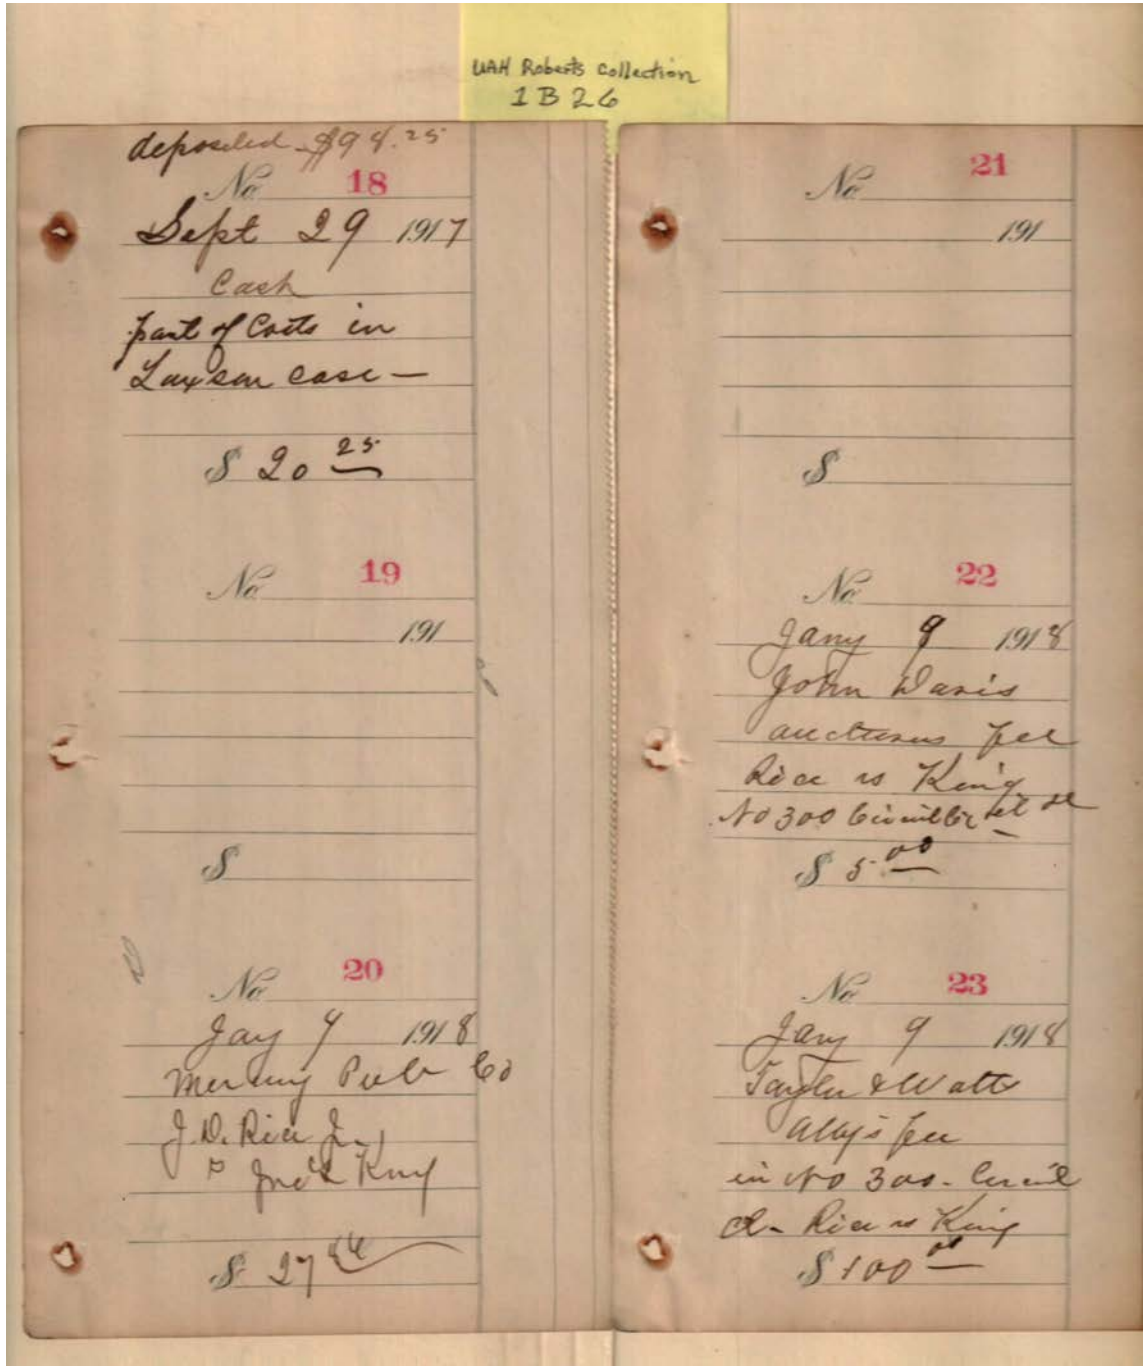 UAH Roberts Collection
1B26
deposited $98.25
No 18
Sept 29 1917
Cash
part of Costs in
Laxson case —
$ 20 25
No 19
191
$
No 20
Jay 9 1918
Mercury Pub Co
J.D. Rice Jr
vs Jno King
$ 27
No 21
191
$
No 22
Jany 9 1918
John Davis
fee
Rice vs King
No 300 Circuit Ct
$ 5.00
No 23
Jany 9 1918
Taylor & Watts
Atty's fee
in No 300 - Circuit
Ct - Rice vs King
$ 100 00